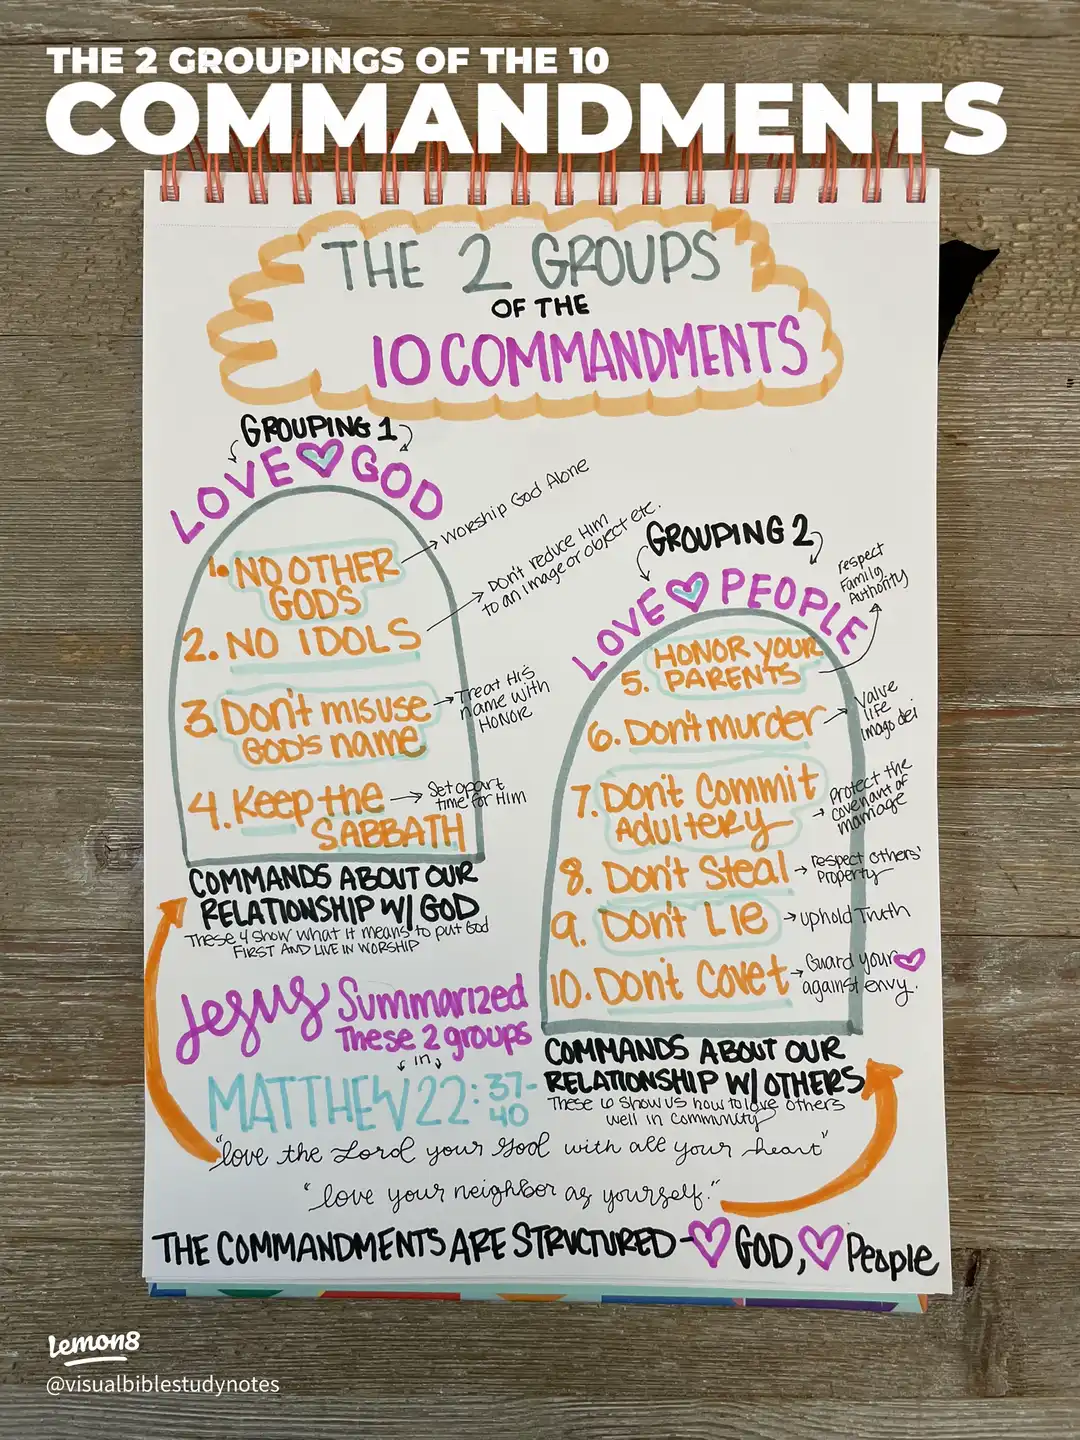 THE 2 GROUPINGS OF THE 10
COMMANDMENTS
THE 2 GROUPS
OF THE
10 COMMANDMENTS
GROUPING 1
LOVE GOD
1. NO OTHER
GODS
worship God Alone
2. NO IDOLS
Don't reduce Him
to an image or object etc.
3. Don't misuse
GOD'S name
Treat His
name with
HONOR
4. Keep the
SABBATH
Set apart
time for Him
COMMANDS ABOUT OUR
RELATIONSHIP W/ GOD
These 4 show what it means to put God
FIRST AND LIVE IN WORSHIP
GROUPING 2
LOVE PEOPLE
5. HONOR YOUR
PARENTS
respect
Family
Authority
6. Don't murder
Value
life
imago dei
7. Don't Commit
Adultery
Protect the
covenant of
marriage
8. Don't Steal
respect others'
Property
9. Don't Lie
uphold Truth
10. Don't Covet
Guard your
against envy.
COMMANDS ABOUT OUR
RELATIONSHIP W/ OTHERS
These 6 show us how to love others
well in Community
Jesus Summarized
These 2 groups
in
MATTHEW 22:37-
40
"love the Lord your God with all your heart"
"love your neighbor as yourself."
THE COMMANDMENTS ARE STRUCTURED - GOD, People
Lemon8
@visualbiblestudynotes